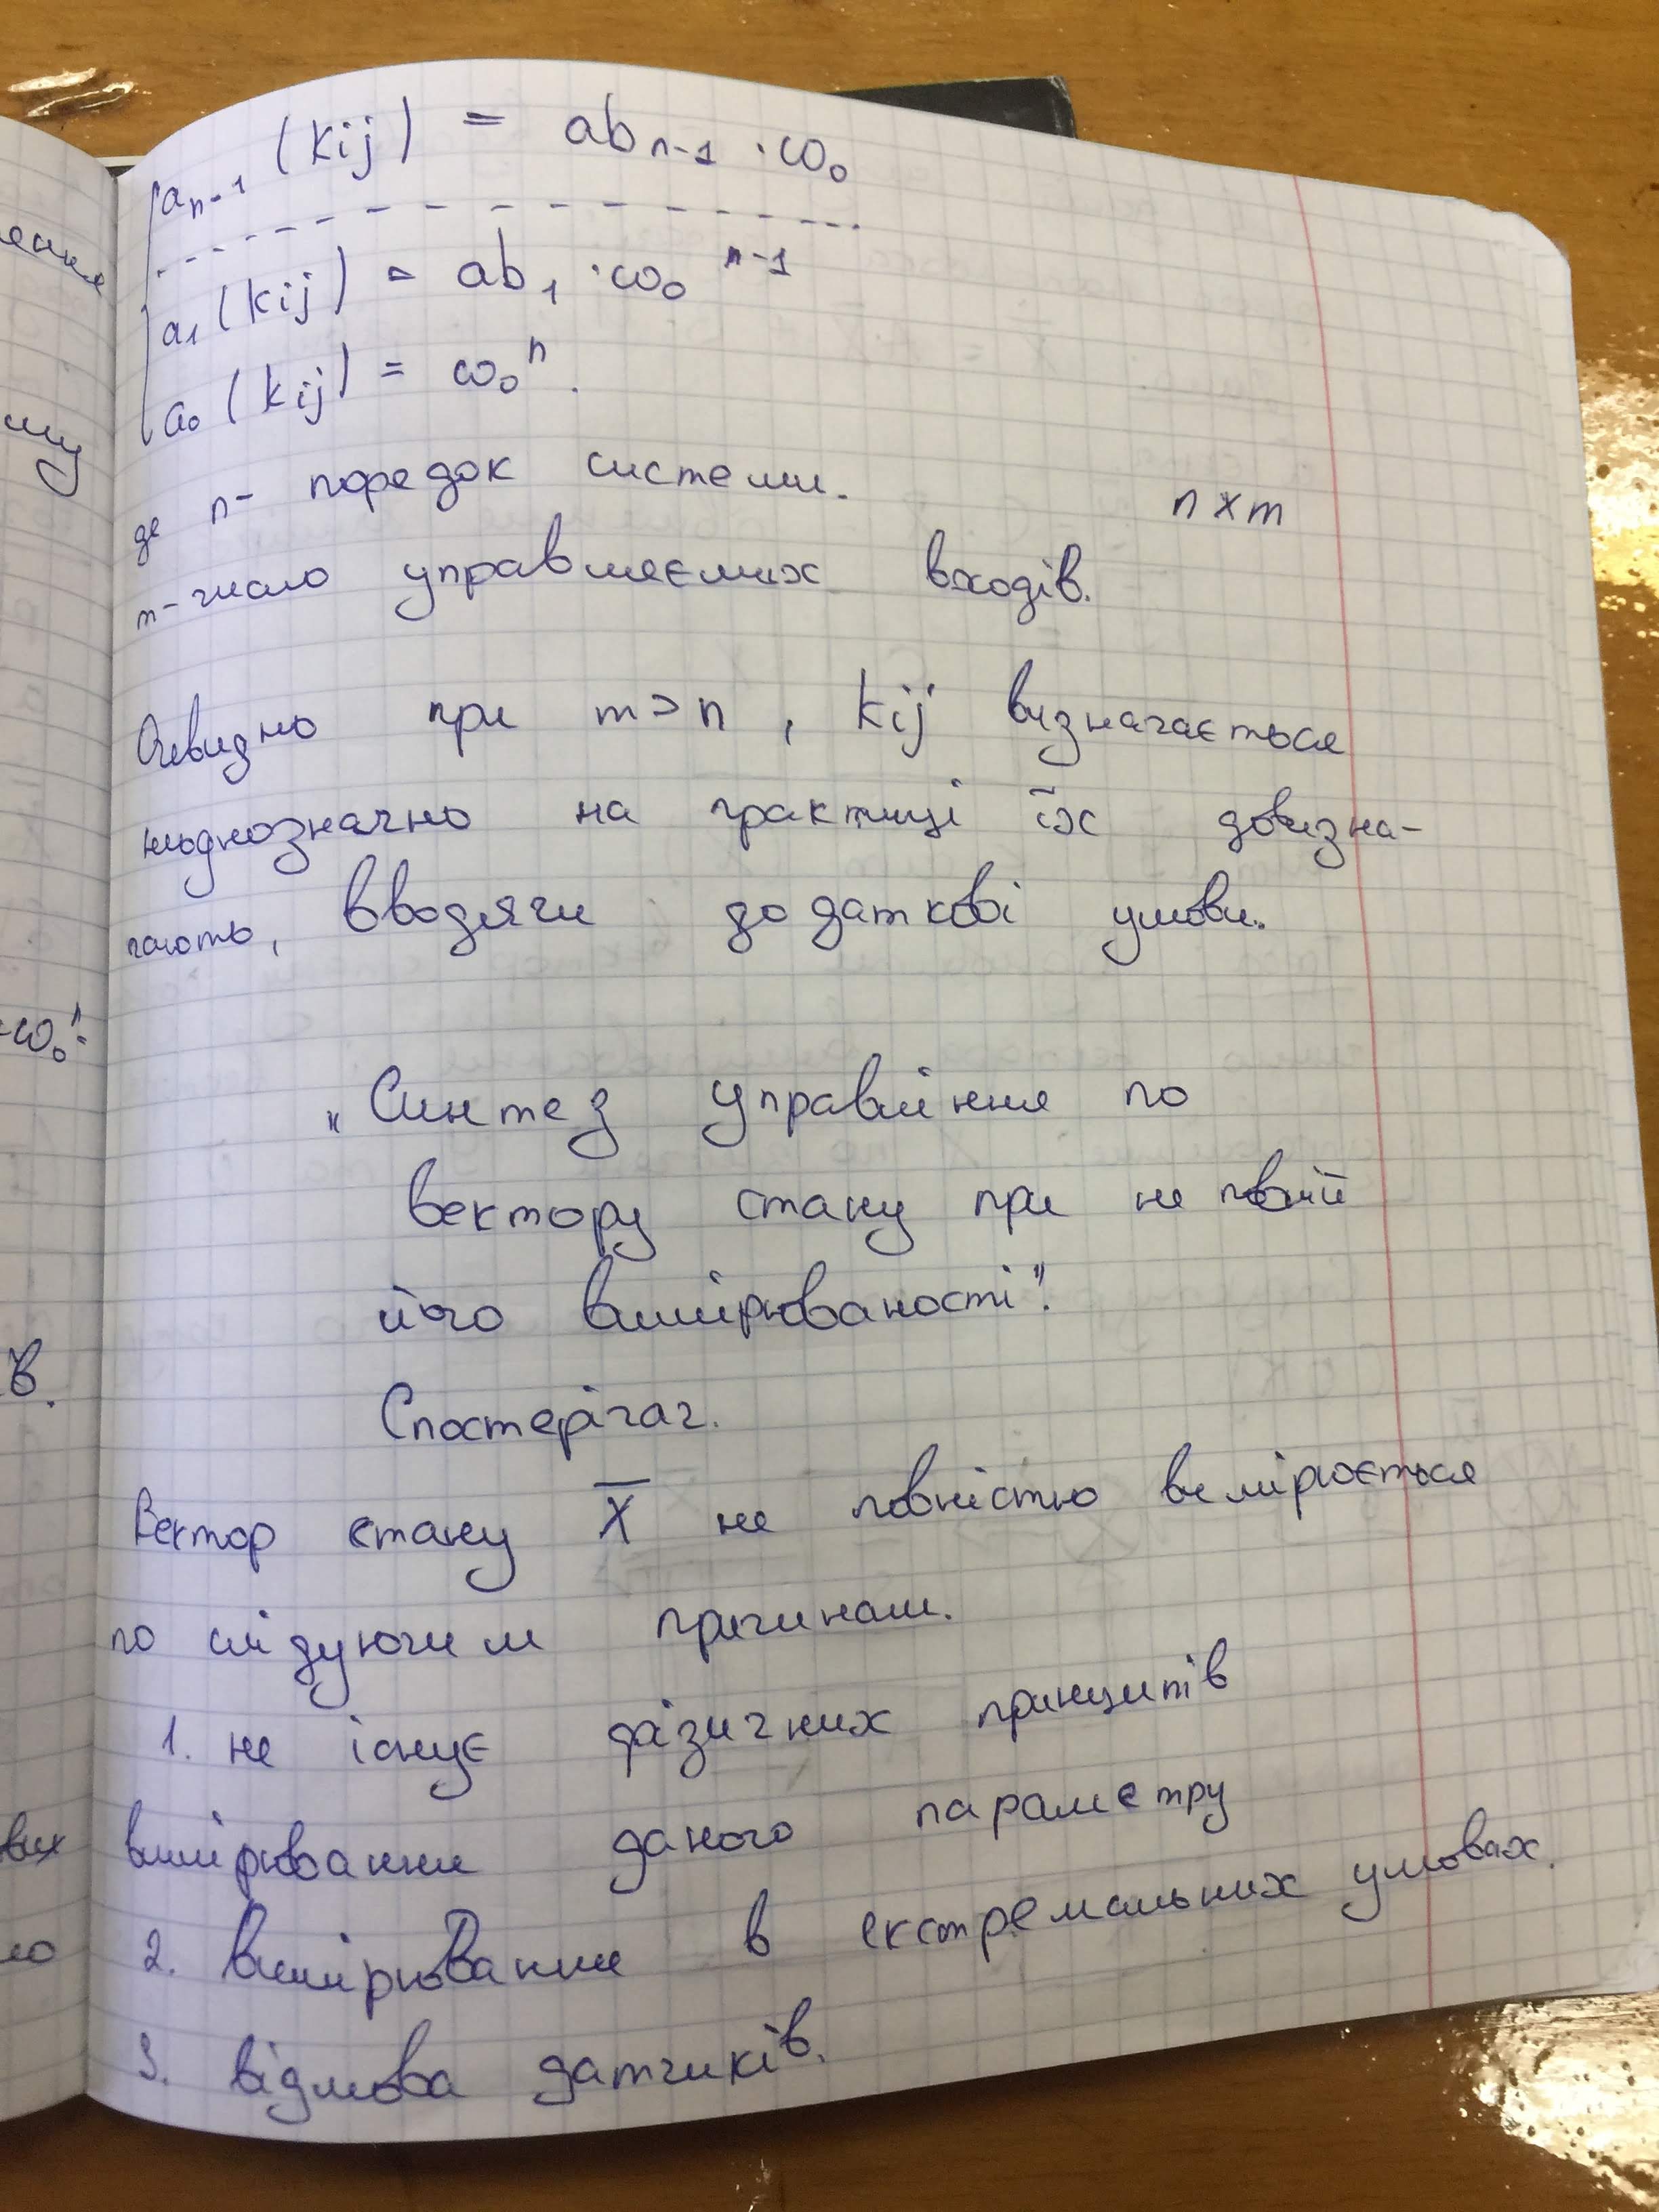 aₙ₋₁ (kij) = abₙ₋₁ · ω₀
a₁ (kij) = ab₁ · ω₀ⁿ⁻¹
a₀ (kij) = ω₀ⁿ.
де n - порєдок системи.
n x m
m - число управляємих входів.
Очевидно при m > n, kij визначається
на практиці їх довизна-
чають, вводячи додаткові умови.
„Синтез управління по
вектору стану при не повній
його вимірюваності".
Спостерігач.
Вектор стану X̅ не повністю вимірюється
по слідуючим причинам.
1. не існує фізичних принципів
вимірювання даного параметру
2. вимірювання в екстремальних умовах.
3. відмова датчиків.